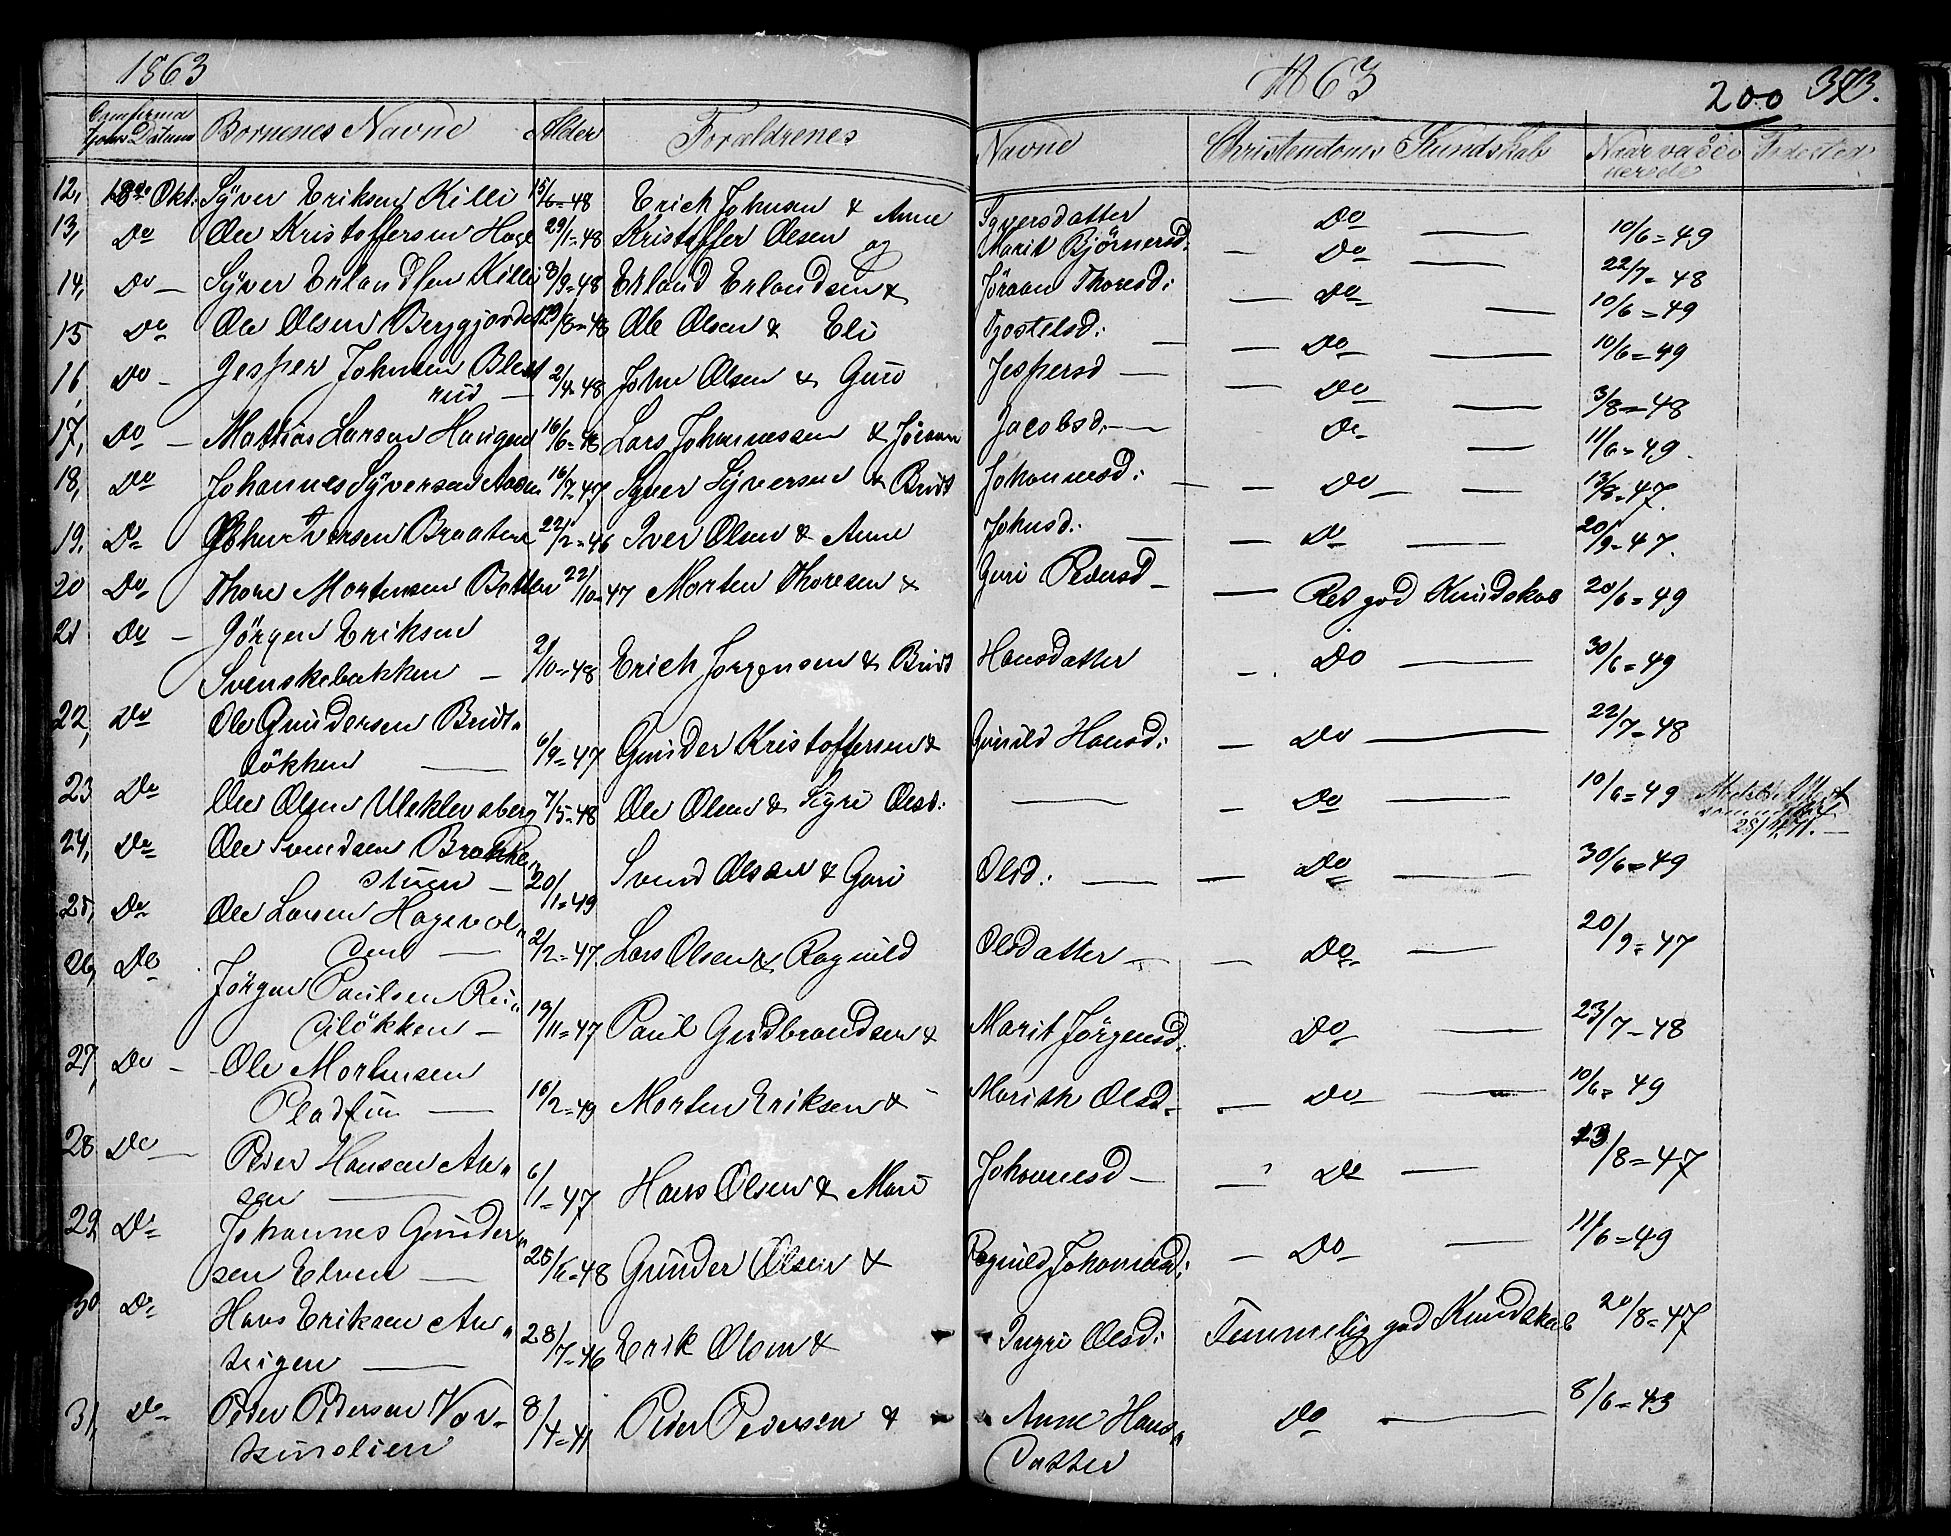 1863
Confirma
tions Datum Børnenes Navne Alder Forældrenes
12, 18de Okt. Syver Eriksen Killi 15/6=48 Erich Johnsen & Anne
13, Do Ole Kristoffersen Hage 29/1=48 Kristoffer Olsen og
14, Do — Syver Erlandsen Killi 3/9=48 Erland Erlandsen &
15 Do Ole Olsen Berggjordet 29/8=48 Ole Olsen & Eli
16, Do — Jesper Johnsen Blest
rud — 2/4=48 John Olsen & Guro
17, Do — Mathias Larsen Haugen 16/6=48 Lars Johannessen & Jöraan
18, Do Johannes Syversen Aasen 16/7=47 Syver Syversen & Britt
19, Do John Iversen Braaten 22/2=46 Iver Olsen & Anne
20 Do Thore Mortensen 22/10=47 Morten Thoresen &
21 Do — Jörgen Eriksen
Svenskebakken — 2/10=48 Erich Jorgensen & Britt
22, Do Ole Gundersen Britt„
lökken — 6/9=47 Gunder Kristoffersen &
23 Do Ole Olsen Uleklevsberg 7/5=48 Ole Olsen & Sigri Olsd:
24, Do Ole Svendsen Brekke„
stuen — 20/1=49 Svend Olsen & Guri
25, Do Ole Larsen Hagevol„
den — 2/2=47 Lars Olsen & Ragnild
26, Do Jörgen Paulsen Rei„
lökken — 19/11=47 Paul Gudbrandsen &
27, Do — Ole Mortensen
— 16/2=49 Morten Eriksen &
28 Do — Peder Hansen An„
sen — 6/1=47 Hans Olsen & Mari
29 Do Johannes Gunder„
sen Elven — 25/5=48 Gunder Olsen &
30 Do Hans Eriksen An„
trigen — 28/7=46 Erik Olsen &
31, Do Peder Pedersen Vor„
8/4=41 Peder Pedersen &
1863 200 373.
Navne Christendoms Kundskab Naar vaccineret Födested
Syversdatter Do — 10/6=49
Marit Björnersd. — Do — 22/7=48
Jöraan Thoresd: — Do — 10/6=49
— Do — 10/6=49
Jespersd — Do — 3/8=48
Jacobsd. — Do — 11/6=49.
Johannesd: — Do — 13/8=47.
Johnsd. — Do — 20/9=47.
Guri Pedersd — Ret god Kundskab 20/6=49
Hansdatter — Do — 30/6=49
Gunild Hansd: — Do — 22/7=48
— Do — 10/6=49
Olsd: — Do — 30/6=49
Olsdatter — Do — 20/9=47
Marit Jörgensd. Do — 23/7=48
Marith Olsd. — Do — 10/6=49
Johannesd — Do — 23/8=47
Ragnild Johannesd: — Do — 11/6=49
Ingri Olsd: Temmelig god Kundskab 20/8=47
Anne Hans„
datter Do — 8/6=43